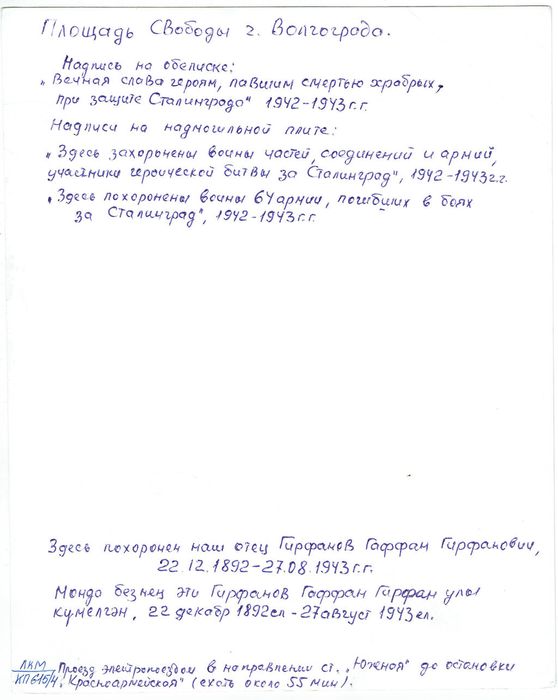 Площадь Свободы г. Волгограда.
Надпись на обелиске:
„Вечная слава героям, павшим смертью храбрых,
при защите Сталинграда" 1942-1943г.г.
Надписи на надмогильной плите:
„Здесь захоронены воины частей, соединений и армий,
участники героической битвы за Сталинград", 1942-1943г.г.
„Здесь похоронены воины 64армии, погибших в боях
за Сталинград", 1942-1943г.г.
Здесь похоронен наш отец Гирфанов Гаффан Гирфанович,
22.12.1892-27.08.1943г.г.
Мондо безнең эти Гирфанов Гаффан Гирфан улы
кумелгэн, 22 декабр 1892ел-27август 1943ел.
ЛКМ
КП615/4
Проезд электропоездом в направлении ст. „Южная" до остановки
„Красноармейская" (ехать около 55 мин).